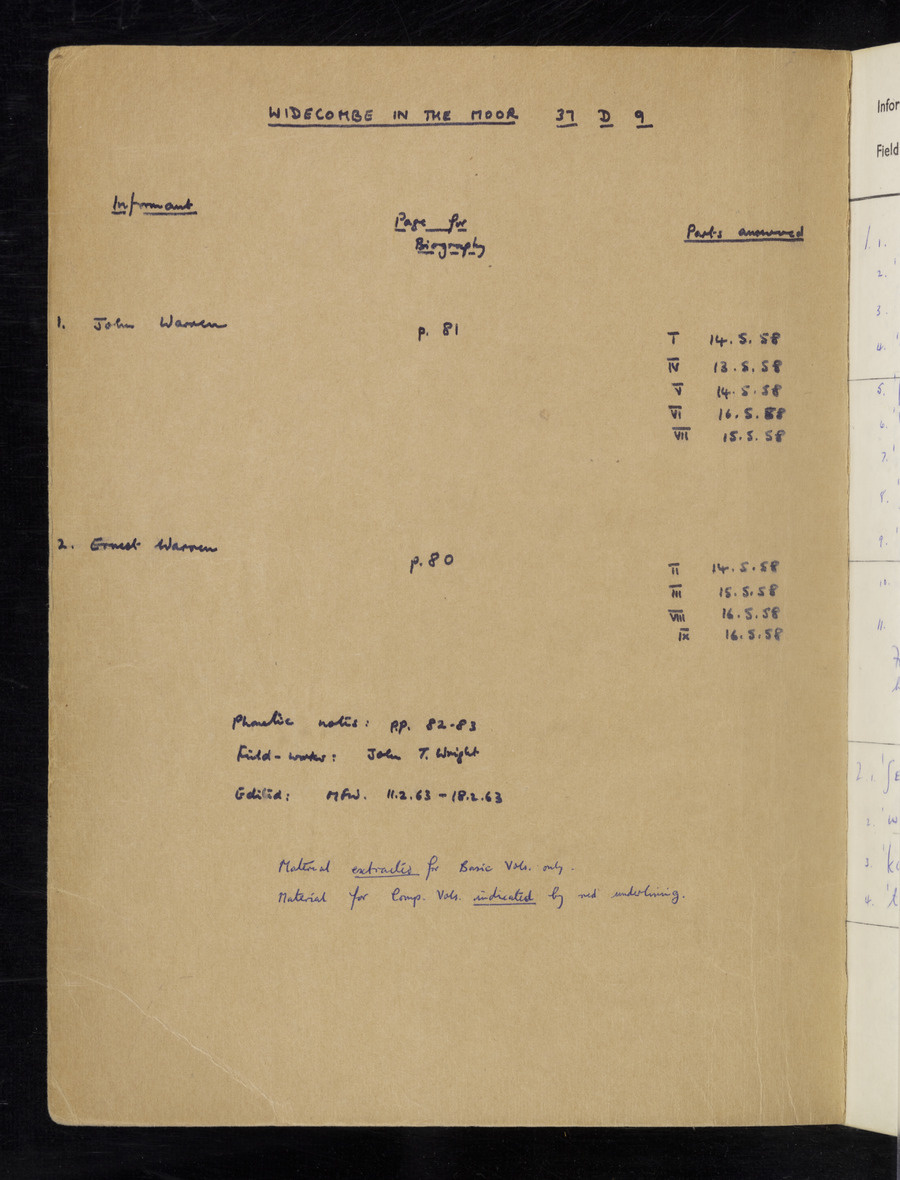 WIDECOMBE IN THE MOOR 37 D 9
Informant
Page for
Biography
Parts answered
1. John Warren p. 81
I 14.5.58
IV 13.5.58
V 14.5.58
VI 16.5.58
VII 15.5.58
2. Ernest Warren p. 80
II 14.5.58
III 15.5.58
VIII 16.5.58
IX 16.5.58
Phonetic notes: pp. 82-83
Field-worker: John T. Wright
Edited: MFW. 11.2.63 - 18.2.63
Material extracted for Basic Vols. only.
Material for Comp. Vols. indicated by red underlining.
Infor
Field
1. 1.
2.
3.
4.
5.
6.
7.
8.
9.
10.
11.
2. 1.
2.
3.
4.